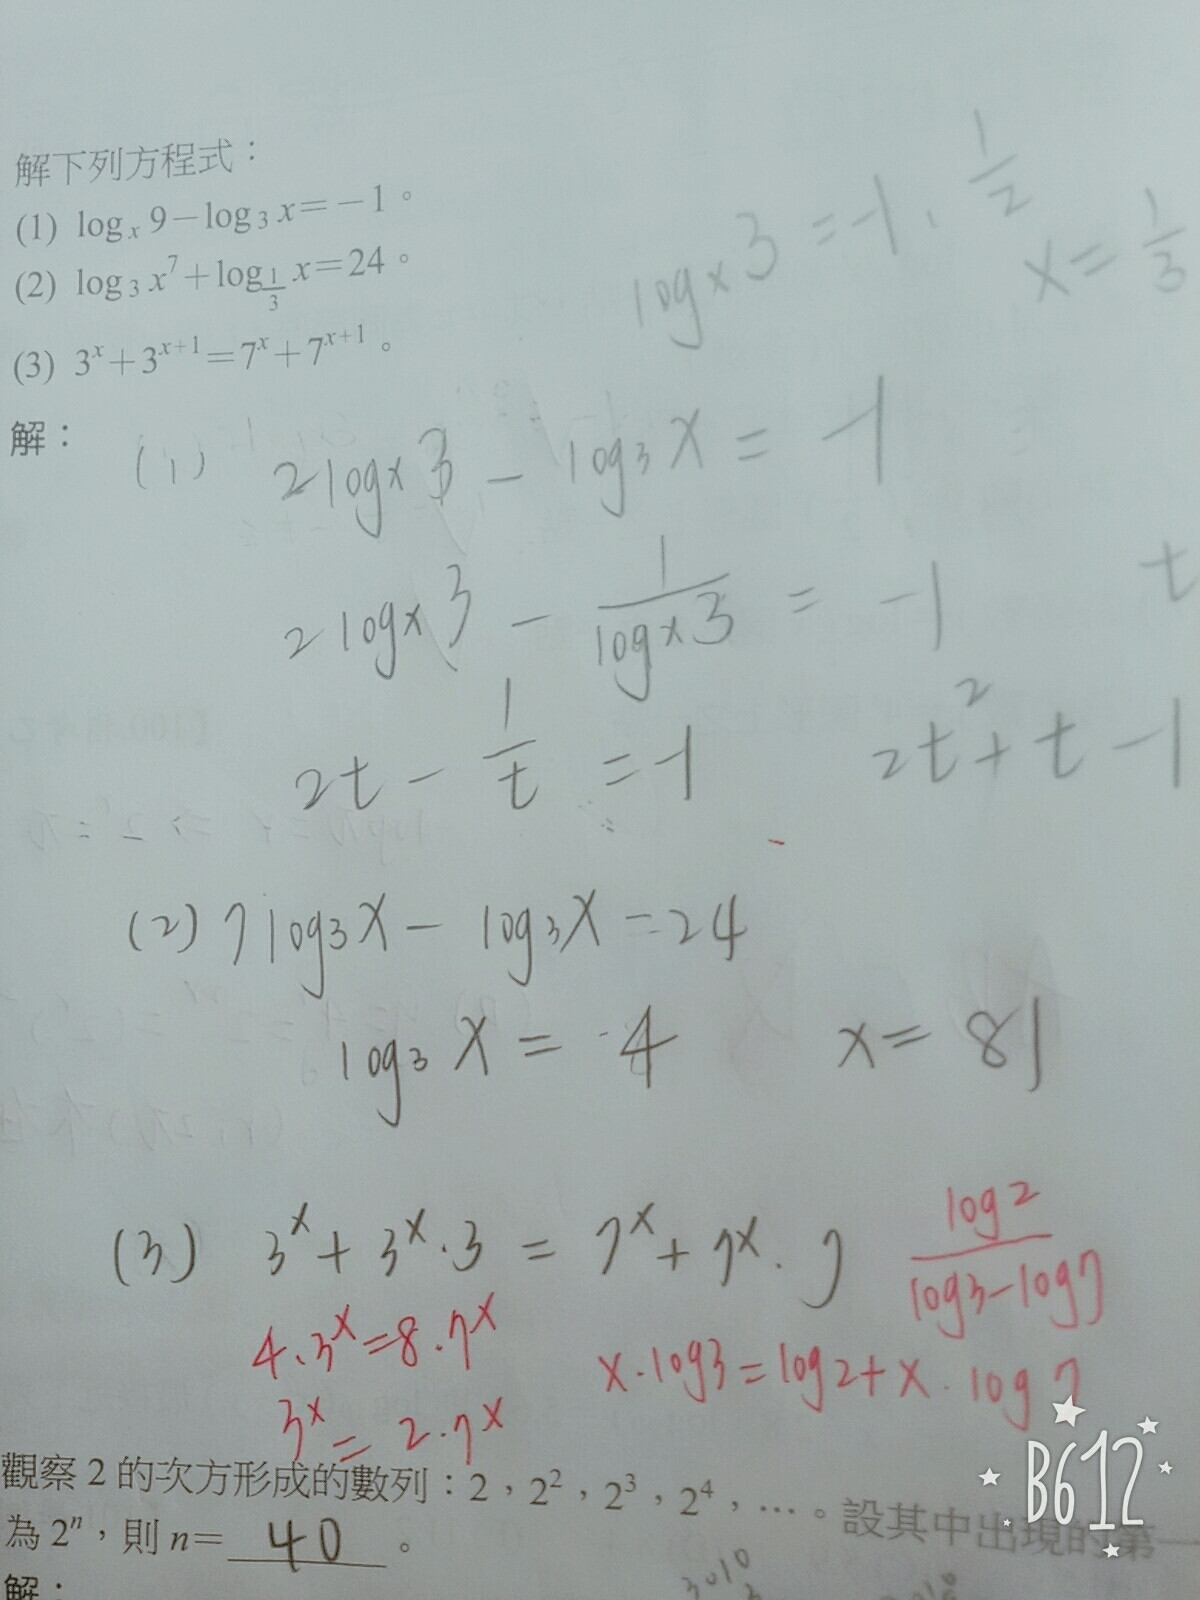 解下列方程式：
(1) logₓ 9－log₃ x＝－1。
(2) log₃ x⁷＋log_{1/3} x＝24。
(3) 3ˣ＋3ˣ⁺¹＝7ˣ＋7ˣ⁺¹。
logₓ 3 = -1, 1/2
x = 1/3
解：
(1) 2logₓ3 - log₃X = -1
2logₓ3 - 1/logₓ3 = -1 t
2t - 1/t = -1 2t²+t-1
(2) 7log₃X - log₃X = 24
log₃X = 4 x = 81
(3) 3ˣ + 3ˣ·3 = 7ˣ + 7ˣ·7
log2/(log3-log7)
4·3ˣ=8·7ˣ
x·log3 = log2+x·log7
3ˣ = 2·7ˣ
觀察 2 的次方形成的數列：2，2²，2³，2⁴，…。設其中出現的第一
為 2ⁿ，則 n＝ 40 。
解：
B612